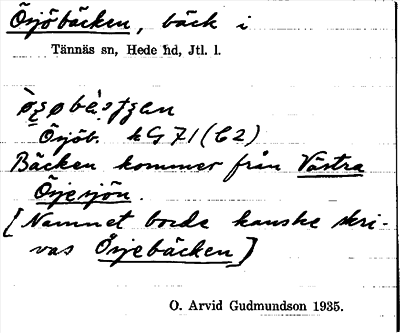 Örjöbäcken, bäck i
Tännäs sn, Hede hd, Jtl. l.
Örjöb. kG 71 (C2)
Bäcken kommer från Västra
Örjesjön.
[Namnet borde kanske skri-
vas Örjebäcken]
O. Arvid Gudmundson 1935.